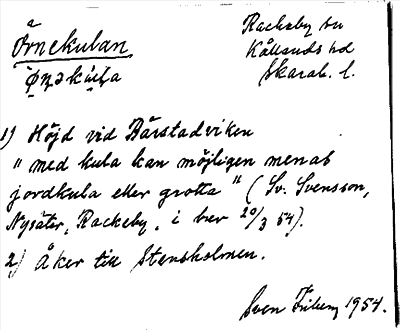 Örnekulan
Rackeby sn
Kållands hd
Skarab. l.
1) Höjd vid Bärstadviken
" med kula kan möjligen menas
jordkula eller grotta " (Sv. Svensson,
Nysäter, Rackeby, i brev 20/3 54).
2) Åker till Stensholmen.
Sven Friberg 1954.